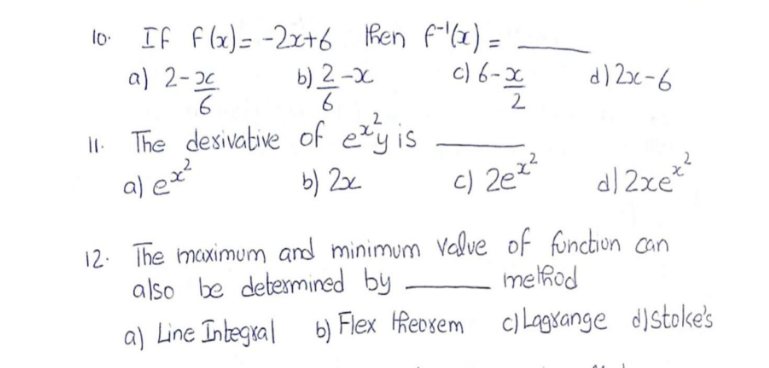 10. If f(x)= -2x+6 then f⁻¹(x) = ____
a) 2-x/6 b) 2/6-x c) 6-x/2 d) 2x-6
11. The derivative of e^x²y is ____
a) e^x² b) 2x c) 2e^x² d) 2xe^x²
12. The maximum and minimum value of function can
also be determined by ____ method
a) Line Integral b) Flex theorem c) Lagrange d) stoke's